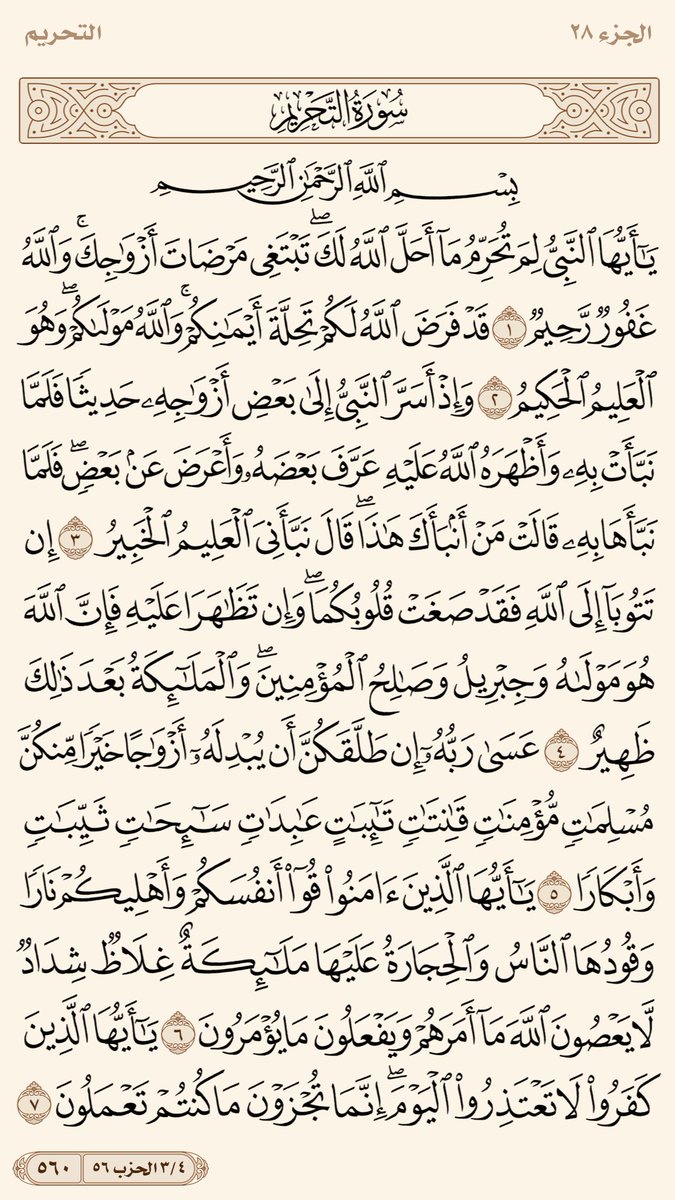 الجزء ٢٨ التحريم
سُورَةُ التَّحْرِيمِ
بِسْمِ ٱللَّهِ ٱلرَّحْمَٰنِ ٱلرَّحِيمِ
يَٰٓأَيُّهَا ٱلنَّبِيُّ لِمَ تُحَرِّمُ مَآ أَحَلَّ ٱللَّهُ لَكَۖ تَبْتَغِي مَرْضَاتَ أَزْوَٰجِكَۚ وَٱللَّهُ
غَفُورٞ رَّحِيمٞ ١ قَدۡ فَرَضَ ٱللَّهُ لَكُمۡ تَحِلَّةَ أَيۡمَٰنِكُمۡۚ وَٱللَّهُ مَوۡلَىٰكُمۡۖ وَهُوَ
ٱلۡعَلِيمُ ٱلۡحَكِيمُ ٢ وَإِذۡ أَسَرَّ ٱلنَّبِيُّ إِلَىٰ بَعۡضِ أَزۡوَٰجِهِۦ حَدِيثٗا فَلَمَّا
نَبَّأَتۡ بِهِۦ وَأَظۡهَرَهُ ٱللَّهُ عَلَيۡهِ عَرَّفَ بَعۡضَهُۥ وَأَعۡرَضَ عَنۢ بَعۡضٖۖ فَلَمَّا
نَبَّأَهَا بِهِۦ قَالَتۡ مَنۡ أَنۢبَأَكَ هَٰذَاۖ قَالَ نَبَّأَنِيَ ٱلۡعَلِيمُ ٱلۡخَبِيرُ ٣ إِن
تَتُوبَآ إِلَى ٱللَّهِ فَقَدۡ صَغَتۡ قُلُوبُكُمَاۖ وَإِن تَظَٰهَرَا عَلَيۡهِ فَإِنَّ ٱللَّهَ
هُوَ مَوۡلَىٰهُ وَجِبۡرِيلُ وَصَٰلِحُ ٱلۡمُؤۡمِنِينَۖ وَٱلۡمَلَٰٓئِكَةُ بَعۡدَ ذَٰلِكَ
ظَهِيرٌ ٤ عَسَىٰ رَبُّهُۥٓ إِن طَلَّقَكُنَّ أَن يُبۡدِلَهُۥٓ أَزۡوَٰجًا خَيۡرٗا مِّنكُنَّ
مُسۡلِمَٰتٖ مُّؤۡمِنَٰتٖ قَٰنِتَٰتٖ تَٰٓئِبَٰتٍ عَٰبِدَٰتٖ سَٰٓئِحَٰتٖ ثَيِّبَٰتٖ
وَأَبۡكَارٗا ٥ يَٰٓأَيُّهَا ٱلَّذِينَ ءَامَنُواْ قُوٓاْ أَنفُسَكُمۡ وَأَهۡلِيكُمۡ نَارٗا
وَقُودُهَا ٱلنَّاسُ وَٱلۡحِجَارَةُ عَلَيۡهَا مَلَٰٓئِكَةٌ غِلَاظٞ شِدَادٞ
لَّا يَعۡصُونَ ٱللَّهَ مَآ أَمَرَهُمۡ وَيَفۡعَلُونَ مَا يُؤۡمَرُونَ ٦ يَٰٓأَيُّهَا ٱلَّذِينَ
كَفَرُواْ لَا تَعۡتَذِرُواْ ٱلۡيَوۡمَۖ إِنَّمَا تُجۡزَوۡنَ مَا كُنتُمۡ تَعۡمَلُونَ ٧
٣/٤ الحزب ٥٦ ٥٦٠